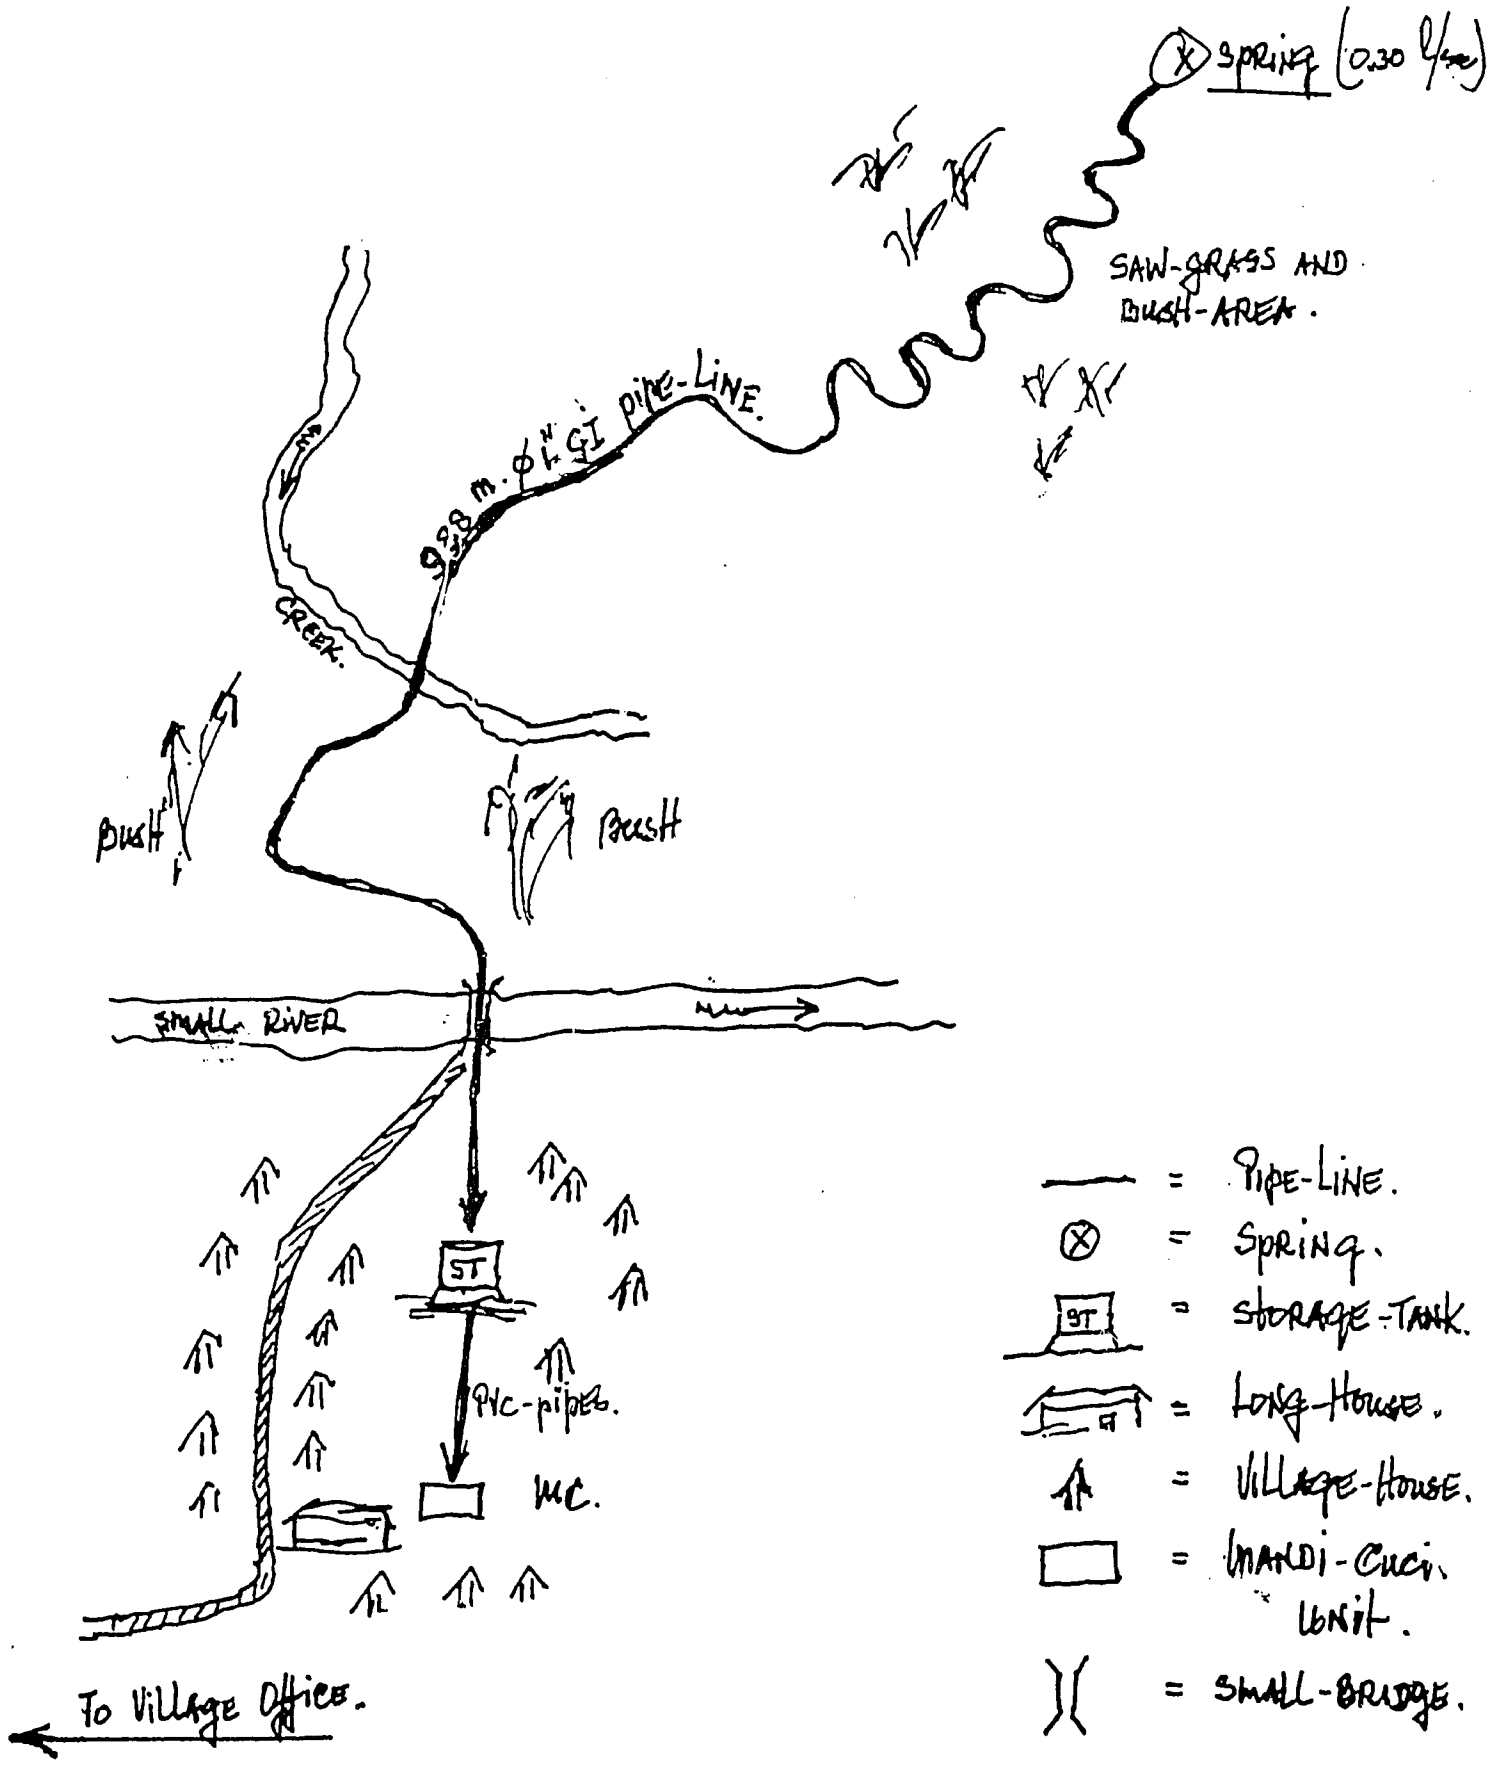 SPRING (0.30 l/sec)
SAW-GRASS AND
BUSH-AREA.
m. Ø 1" GI PIPE-LINE.
CREEK.
BUSH
BUSH
SMALL RIVER
ST
PVC-pipes.
MC.
TO VILLAGE OFFICE.
= PIPE-LINE.
X = SPRING.
ST = STORAGE-TANK.
= LONG-HOUSE.
= VILLAGE-HOUSE.
= MANDI-CUCI.
UNIT.
= SMALL-BRIDGE.